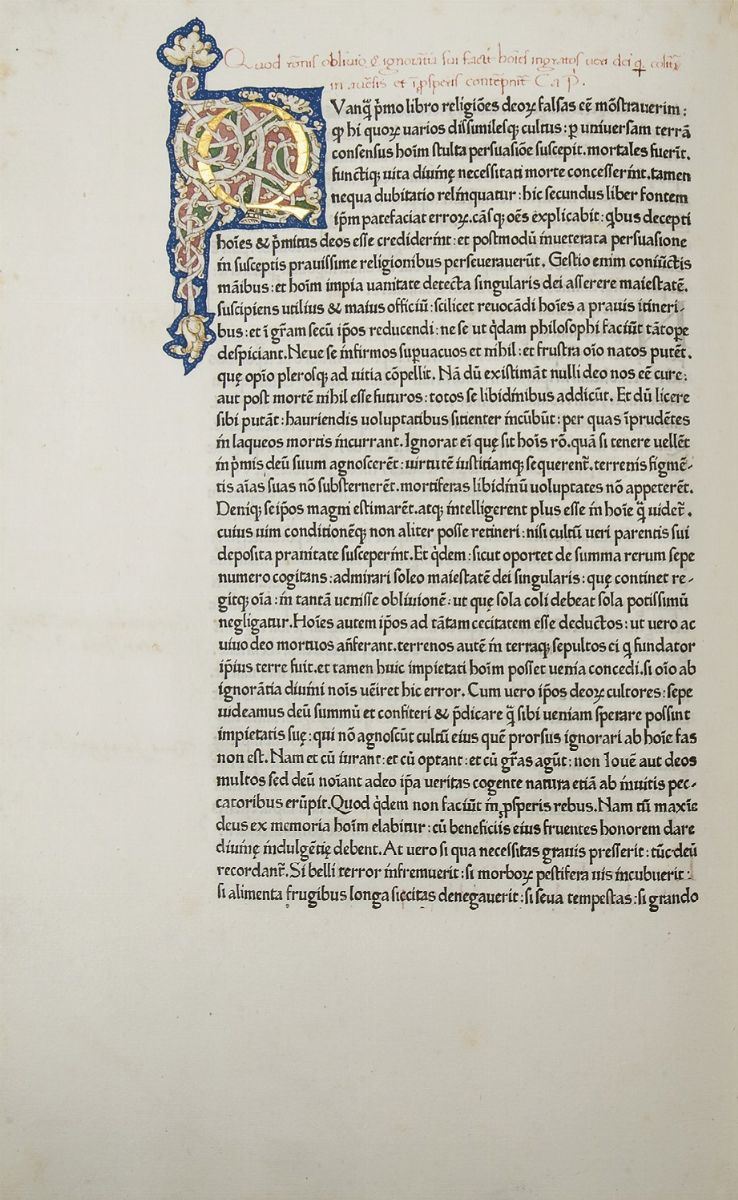 Quod rōnis obliuio & ignorātia sui facit hoīes ingratos ueri dei q̄ colit̄
in aduersis et ī ꝓsperis contēpnit Ca P.
QVanq̄ p̄mo libro religiōes deoꝝ falsas eē mōstrauerim:
ꝙ hi quoꝝ uarios dissimilesq; cultus: ꝑ uniuersam terrā
consensus hoīm stulta persuasiōe suscepit. mortales fuerīt.
functiq; uita diuinę necessitati morte concesserint. tamen
nequa dubitatio relinquatur: hic secundus liber fontem
ip̄m patefaciat erroꝝ. cāsq; oēs explicabit: qbus decepti
hoīes & p̄mitus deos esse crediderint: et postmodū inueterata persuasione
in susceptis prauissime religionibus perseuerauerūt. Gestio enim coniūctis
māibus: et hoīm impia uanitate detecta singularis dei asserere maiestatē.
suscipiens utilius & maius officiū: scilicet reuocādi hoīes a prauis itineri-
bus: et ī gr̄am secū ip̄os reducendi: ne se ut qdam philosophi faciūt tātoꝑe
despiciant. Neue se infirmos suꝑuacuos et nihil: et frustra oīo natos putēt.
quę opīo plerosq; ad uitia cōpellit. Nā dū existimāt nulli deo nos eē cure:
aut post mortē nihil esse futuros: totos se libidinibus addicūt. Et dū licere
sibi putāt: hauriendis uoluptatibus sitienter incūbūt: per quas īprudētes
in laqueos mortis incurrant. Ignorat eī quę sit hoīs rō. quā si tenere uellēt
in p̄mis deū suum agnoscerēt: uirtutē iustitiamq; sequerent̄. terrenis figmē-
tis aīas suas nō substernerēt. mortiferas libidinū uoluptates nō appeterēt.
Deniq; se ip̄os magni estimarēt. atq; intelligerent plus esse in hoīe q̄ uidet̄.
cuius uim conditionēq; non aliter posse retineri: nisi cultū ueri parentis sui
deposita prauitate susceperint. Et qdem: sicut oportet de summa rerum sepe
numero cogitans: admirari soleo maiestatē dei singularis: quę continet re-
gitq; oīa: in tantā uenisse obliuionē: ut quę sola coli debeat sola potissimū
negligatur. Hoīes autem ip̄os ad tātam cecitatem esse deductos: ut uero ac
uiuo deo mortuos añferant. terrenos autē in terraq; sepultos ei q fundator
ip̄ius terre fuit. et tamen huic impietati hoīm posset uenia concedi. si oīo ab
ignorātia diuini noīs uēiret hic error. Cum uero ip̄os deoꝝ cultores: sepe
uideamus deū summū et confiteri & p̄dicare q̄ sibi ueniam sperare possint
impietatis suę: qui nō agnoscūt cultū eius quē prorsus ignorari ab hoīe fas
non est. Nam et cū iurant: et cū optant: et cū gr̄as agūt: non Iouē aut deos
multos sed deū noīant adeo ip̄a ueritas cogente natura etiā ab inuitis pec-
catoribus erūpit. Quod qdem non faciūt in ꝓsperis rebus. Nam tū maxīe
deus ex memoria hoīm elabitur: cū beneficiis eius fruentes honorem dare
diuinę indulgētię debent. At uero si qua necessitas grauis presserit: tūc deū
recordant̄. Si belli terror infremuerit: si morboꝝ pestifera uis incubuerit:
si alimenta frugibus longa siccitas denegauerit: si seua tempestas: si grando